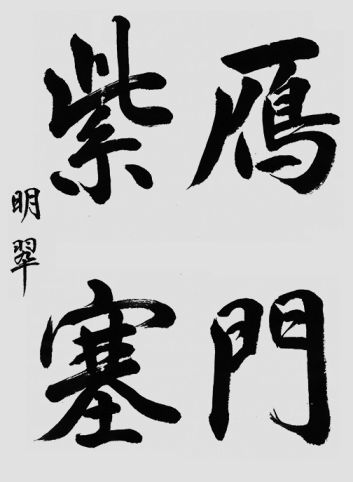 鴈門
紫塞
明翠